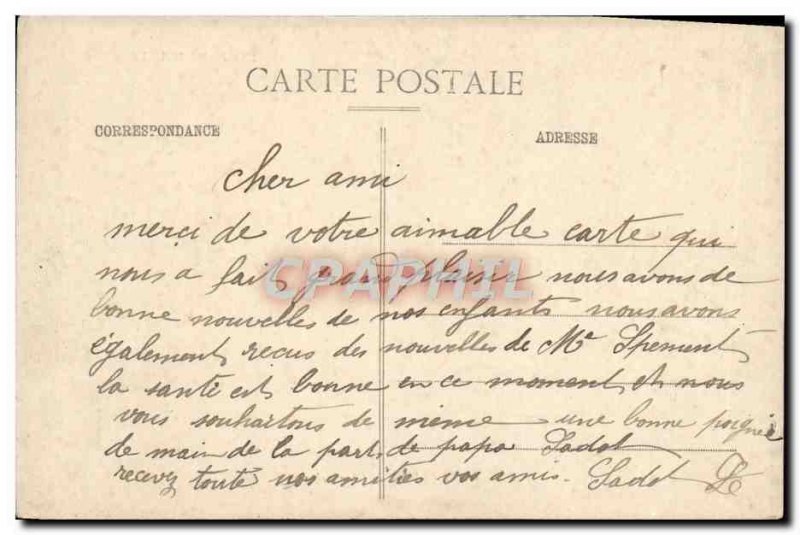 CARTE POSTALE
CORRESPONDANCE
ADRESSE
cher ami
merci de votre aimable carte qui
nous a fait grand plaisir nous avons de
bonne nouvelles de nos enfants nous avons
également recus des nouvelles de Mr
la santé est bonne en ce moment et nous
vous souhaitons de même une bonne poignée
de main de la part de papa Sadot
recevez toute nos amitiés vos amis. Sadot
CPAPHIL